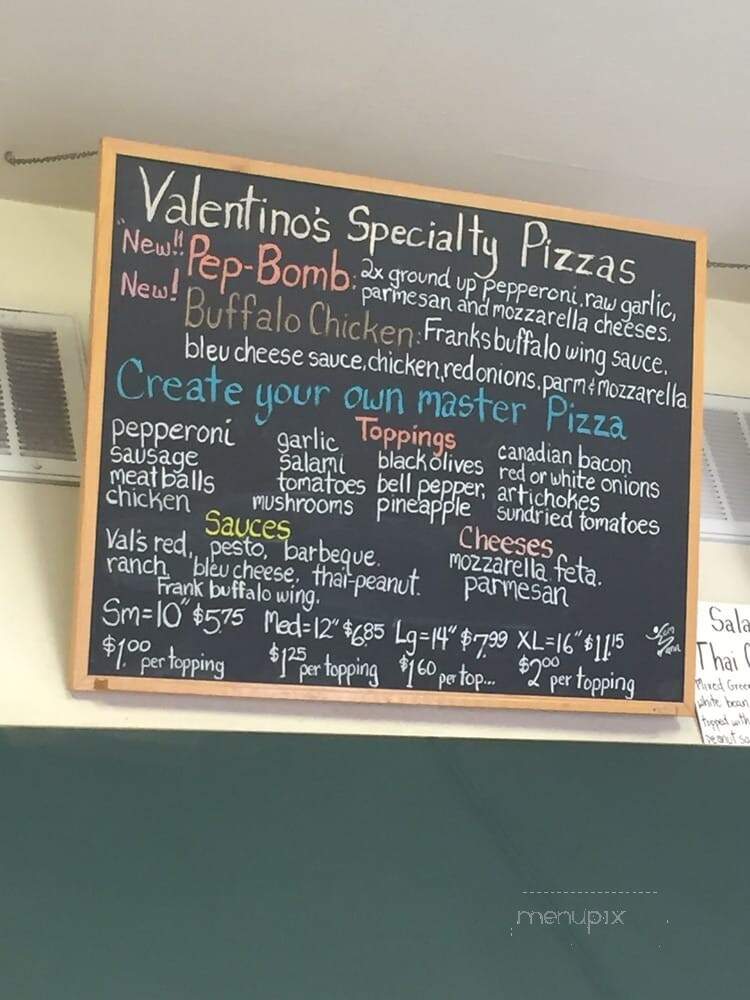 Valentino's Specialty Pizzas
New!! Pep-Bomb: 2x ground up pepperoni, raw garlic,
parmesan and mozzarella cheeses.
New! Buffalo Chicken: Franks buffalo wing sauce,
bleu cheese sauce, chicken, red onions, parm & mozzarella
Create your own master Pizza
Toppings
pepperoni garlic black olives canadian bacon
sausage salami bell pepper, red or white onions
meatballs tomatoes pineapple artichokes
chicken mushrooms sundried tomatoes
Sauces
Val's red, pesto, barbeque.
ranch, bleu cheese, thai-peanut.
Frank buffalo wing.
Cheeses
mozzarella, feta.
parmesan
Sm=10" $5.75 Med=12" $6.85 Lg=14" $7.99 XL=16" $11.15
$1.00 per topping $1.25 per topping $1.60 per top... $2.00 per topping
Sala
Thai
Mixed Gree
white bean
topped with
peanut sa
menupix